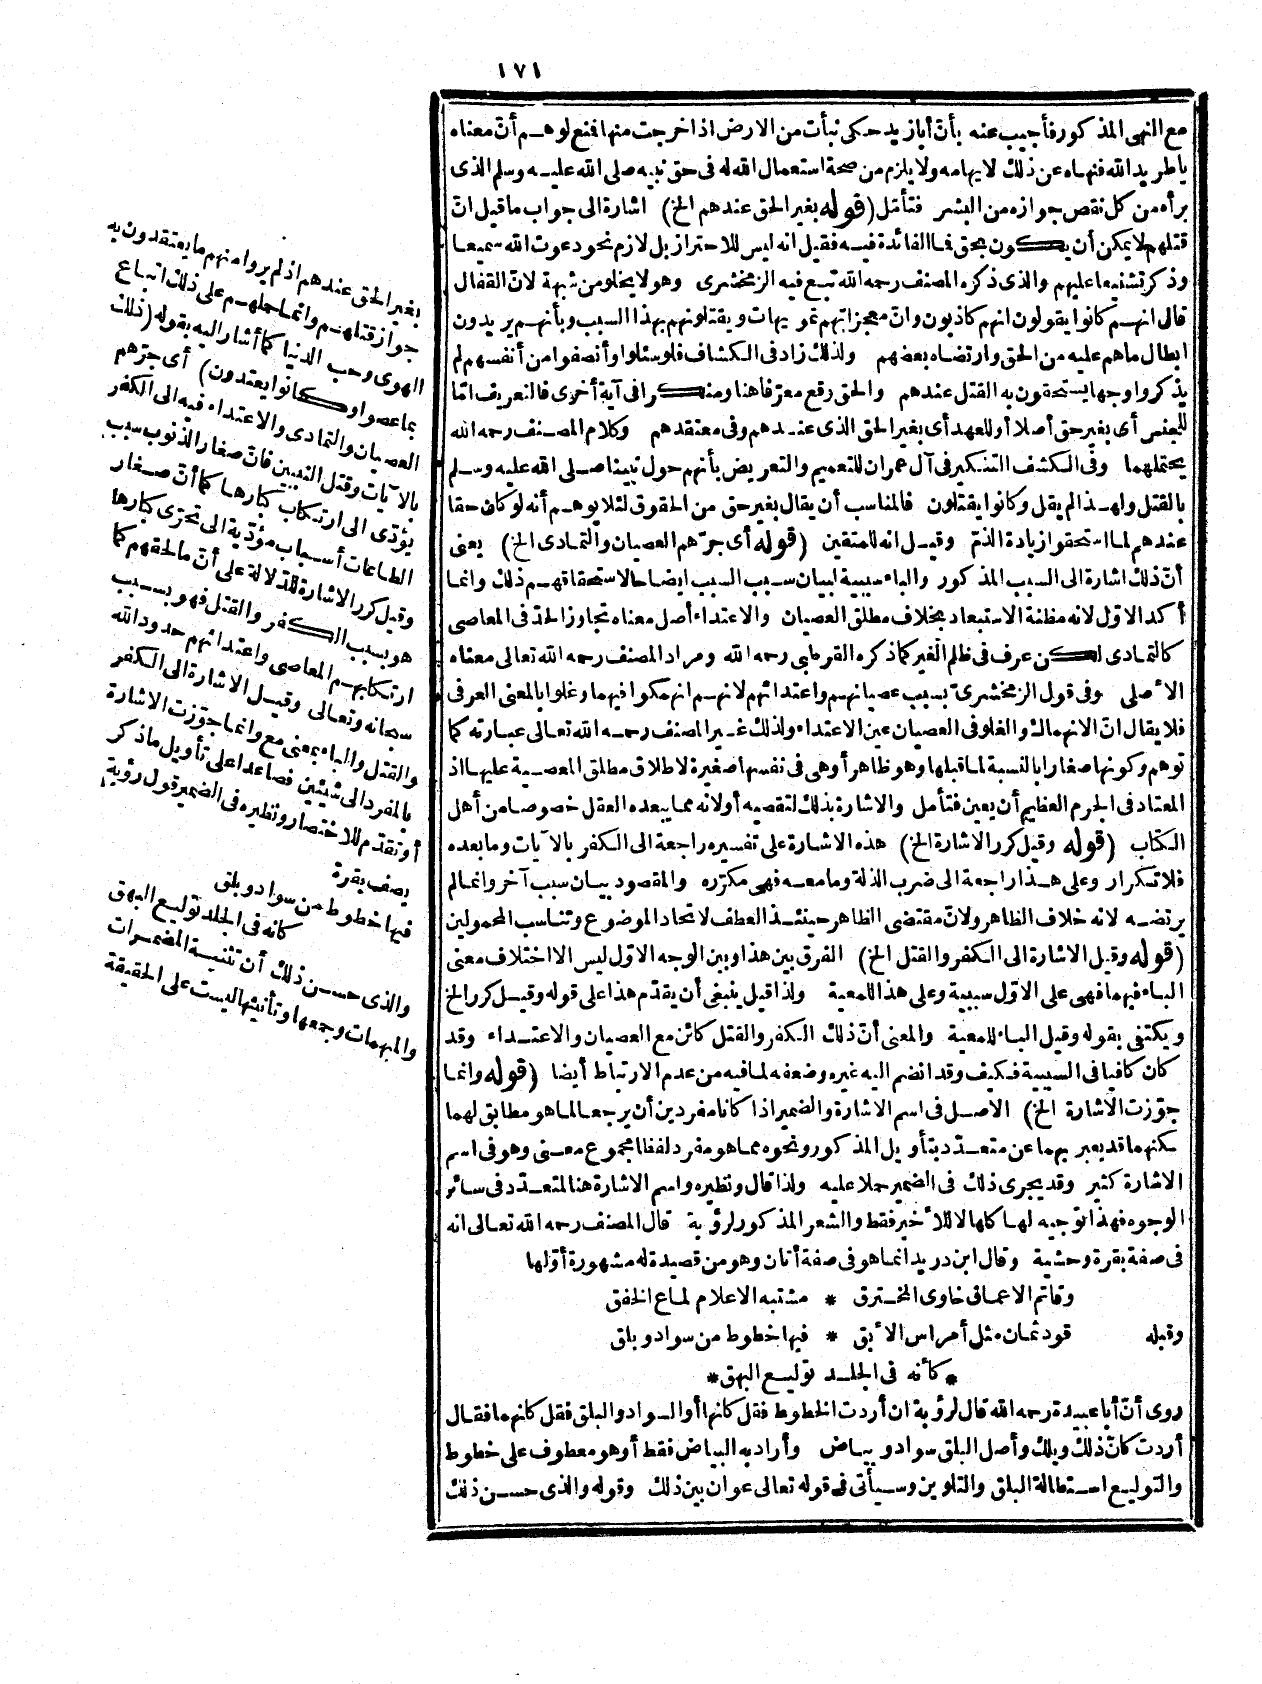 ١٧١
مع النهى المذكور فأجيب عنه بأنّ أبا زيد حكى نبأت من الارض اذا خرجت منها فمنع لوهم أنّ معناه
يا طريد الله فنهاه عن ذلك لايهامه ولا يلزم من صحة استعمال الله له فى حق نبيه صلى الله عليه وسلم الذى
برأه من كل نقص جوازه من البشر فتأمّل (قوله بغير الحق عندهم الخ) اشارة الى جواب ما قيل انّ
قتلهم لا يمكن أن يكون بحق فما الفائدة فيه فقيل انه ليس للاحتراز بل لازم نحو دعوت الله سميعا
وذكر تشنيعا عليهم والذى ذكره المصنف رحمه الله تبع فيه الزمخشرى وهو لا يخلو من شبهة لانّ القفال
قال انهم كانوا يقولون انهم كاذبون وانّ معجزاتهم تمويهات ويقتلونهم بهذا السبب وبأنهم يريدون
ابطال ما هم عليه من الحق وارتضاه بعضهم ولذلك زاد فى الكشاف فلو سئلوا وأنصفوا من أنفسهم لم
يذكروا وجها يستحقون به القتل عندهم والحق رقع معرّفا هنا ومنكرا فى آية أخرى فالتعريف امّا
للجنس أى بغير حق أصلا أو للعهد أى بغير الحق الذى عندهم وفى معتقدهم وكلام المصنف رحمه الله
يحتملهما وفى الكشف التنكير فى آل عمران للتعميم والتعريض بأنهم حول نبينا صلى الله عليه وسلم
بالقتل ولهذا لم يقل وكانوا يقتلون فالمناسب أن يقال بغير حق من الحقوق لئلا يوهم أنه لو كان حقا
عندهم لما استحقوا زيادة الذمّ وقيل انه للمتقين (قوله أى جرّهم العصيان والتمادى الخ) يعنى
أنّ ذلك اشارة الى السبب المذكور والباء سببية لبيان سبب السبب ايضاحا لاستحقاقهم ذلك وانما
أكد الاوّل لانه مظنة الاستبعاد بخلاف مطلق العصيان والاعتداء أصل معناه تجاوز الحدّ فى المعاصى
كالتمادى لكن عرف فى ظلم الغير كما ذكره القرمابى رحمه الله ومراد المصنف رحمه الله تعالى معناه
الأصلى وفى قول الزمخشرىّ بسبب عصيانهم واعتدائهم لانهم انهمكوا فيهما وغلوا بالمعنى العرفى
فلا يقال انّ الانهماك والغلو فى العصيان عين الاعتداء ولذلك غير المصنف رحمه الله تعالى عبارته كما
توهم وكونها صغارا بالنسبة لما قبلها وهو ظاهر أو هى فى نفسها صغيرة لاطلاق مطلق المعصية عليها اذ
المعتاد فى الجرم العظيم أن يعين فتأمل والاشارة بذلك لتقصيه أو لانه مما يبعده العقل خصوصا من أهل
الكتاب (قوله وقيل كرر الاشارة الخ) هذه الاشارة على تفسيره راجعة الى الكفر بالآيات وما بعده
فلا تكرار وعلى هذا راجعة الى ضرب الذلة وما معه فهى مكرّره والمقصود بيان سبب آخر وانما لم
يرتضه لانه خلاف الظاهر ولانّ مقتضى الظاهر حينئذ العطف لاتحاد الموضوع وتناسب المحمولين
(قوله وقيل الاشارة الى الكفر والقتل الخ) الفرق بين هذا وبين الوجه الاوّل ليس الا اختلاف معنى
الباء فيهما فهى على الاوّل سببية وعلى هذا للمعية ولذا قيل ينبغى أن يقدّم هذا على قوله وقيل كرر الخ
ويكتفى بقوله وقيل الباء للمعية والمعنى أنّ ذلك الكفر والقتل كائن مع العصيان والاعتداء وقد
كان كافيا فى السببية فكيف وقد انضم اليه غيره وضعفه لما فيه من عدم الارتباط أيضا (قوله وانما
جوّزت الاشارة الخ) الاصل فى اسم الاشارة والضمير اذا كانا مفردين أن يرجعا لما هو مطابق لهما
لكنهما قد يعبر بهما عن متعدّد بتأويل المذكور ونحوه مما هو مفرد لفظا مجموع معنى وهو فى اسم
الاشارة كثير وقد يجرى ذلك فى الضمير حملا عليه ولذا قال ونظيره واسم الاشارة هنا لمتعدّد فى سائر
الوجوه فهذا توجيه لها كلها لا للأخير فقط والشعر المذكور لرؤبة قال المصنف رحمه الله تعالى انه
فى صفة بقرة وحشية وقال ابن دريد انما هو فى صفة أتان وهو من قصيدة له مشهورة أوّلها
وقاتم الاعماق خاوى المخترق * مشتبه الاعلام لماع الخفق
وقبله قود ثمان مثل أمراس الأبق * فيها خطوط من سواد وبلق
* كأنه فى الجلد توليع البهق *
روى أنّ أبا عبيدة رحمه الله قال لرؤبة ان أردت الخطوط فقل كأنها أو السواد والبلق فقل كأنهما فقال
أردت كأنّ ذلك ويلك وأصل البلق سواد وبياض وأراد به البياض فقط أو هو معطوف على خطوط
والتوليع استطالة البلق والتلوين وسيأتى فى قوله تعالى عوان بين ذلك وقوله والذى حسن ذلك
بغير الحق عندهم اذ لم يروا منهم ما يعتقدون به
جواز قتلهم وانما حملهم على ذلك اتباع
الهوى وحب الدنيا كما أشار اليه بقوله (ذلك
بما عصوا وكانوا يعتدون) أى جرّهم
العصيان والتمادى والاعتداء فيه الى الكفر
بالآيات وقتل النبيين فانّ صغار الذنوب سبب
يؤدّى الى ارتكاب كبارها كما أنّ صغار
الطاعات أسباب مؤدّية الى تحرّى كبارها
وقيل كرر الاشارة للدلالة على أنّ ما لحقهم كما
هو بسبب الكفر والقتل فهو بسبب
ارتكابهم المعاصى واعتدائهم حدود الله
سبحانه وتعالى وقيل الاشارة الى الكفر
والقتل والباء بمعنى مع وانما جوّزت الاشارة
بالمفرد الى شيئين فصاعدا على تأويل ما ذكر
أو تقدّم للاختصار ونظيره فى الضمير قول رؤبة
يصف بقرة
فيها خطوط من سواد وبلق
كأنه فى الجلد توليع البهق
والذى حسن ذلك أن تثنية المضمرات
والمبهمات وجمعها وتأنيثها ليست على الحقيقة